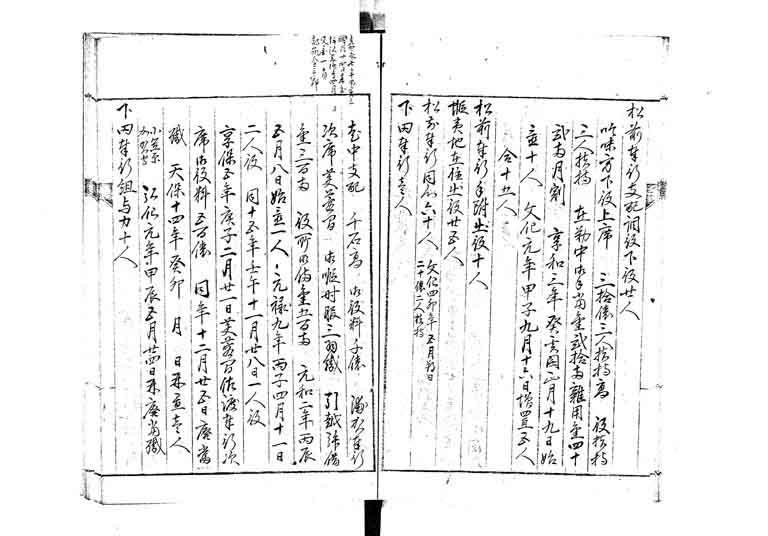 松前奉行支配調役下役廿人
吟味方下役上席 三拾俵三人扶持高 役扶持
三人扶持 在勤中御手当金弐拾両雑用金四十
弐両月割 享和三年癸亥閏正月十九日始
置十人 文化元年甲子九月十六日増置五人
合十五人
松前奉行手附出役十人
蝦夷地在住出役廿五人
松前奉行同心六十人 文化四卯年五月朔日
二十俵二人扶持
下田奉行壱人
老中支配 千石高 御役料千俵 浦賀奉行
次席芙蓉間 御暇時服三羽織 引越拝借
金三百両 役所御備金五百両 元和二年丙辰
五月八日始置一人 元禄九年丙子四月十一日
二人役 同十五年壬午十一月廿八日一人役
享保五年庚子二月廿一日芙蓉間佐渡奉行次
席御役料五百俵 同年十二月廿五日廃当
職 天保十四年癸卯 月 日再置壱人
小笠原
加賀守 弘化元年甲辰五月廿四日再廃当職
下田奉行組与力十人